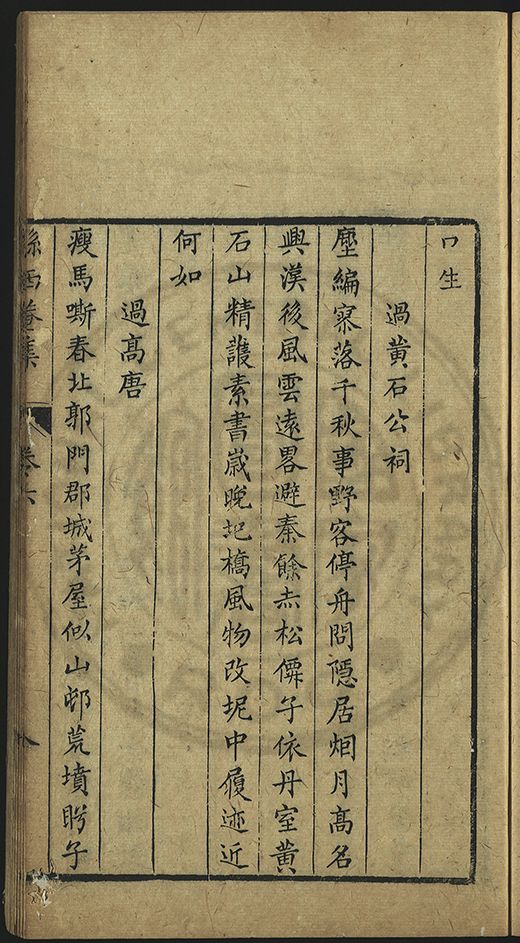 口生
過黃石公祠
塵編寥落千秋事野客停舟問隱居烟月高名
興漢後風雲遠畧避秦餘赤松僊子依丹室黃
石山精護素書歲晚圯橋風物改圯中履迹近
何如
過高唐
瘦馬嘶春北郭門郡城茅屋似山邨荒墳盼子
西菴集 卷六